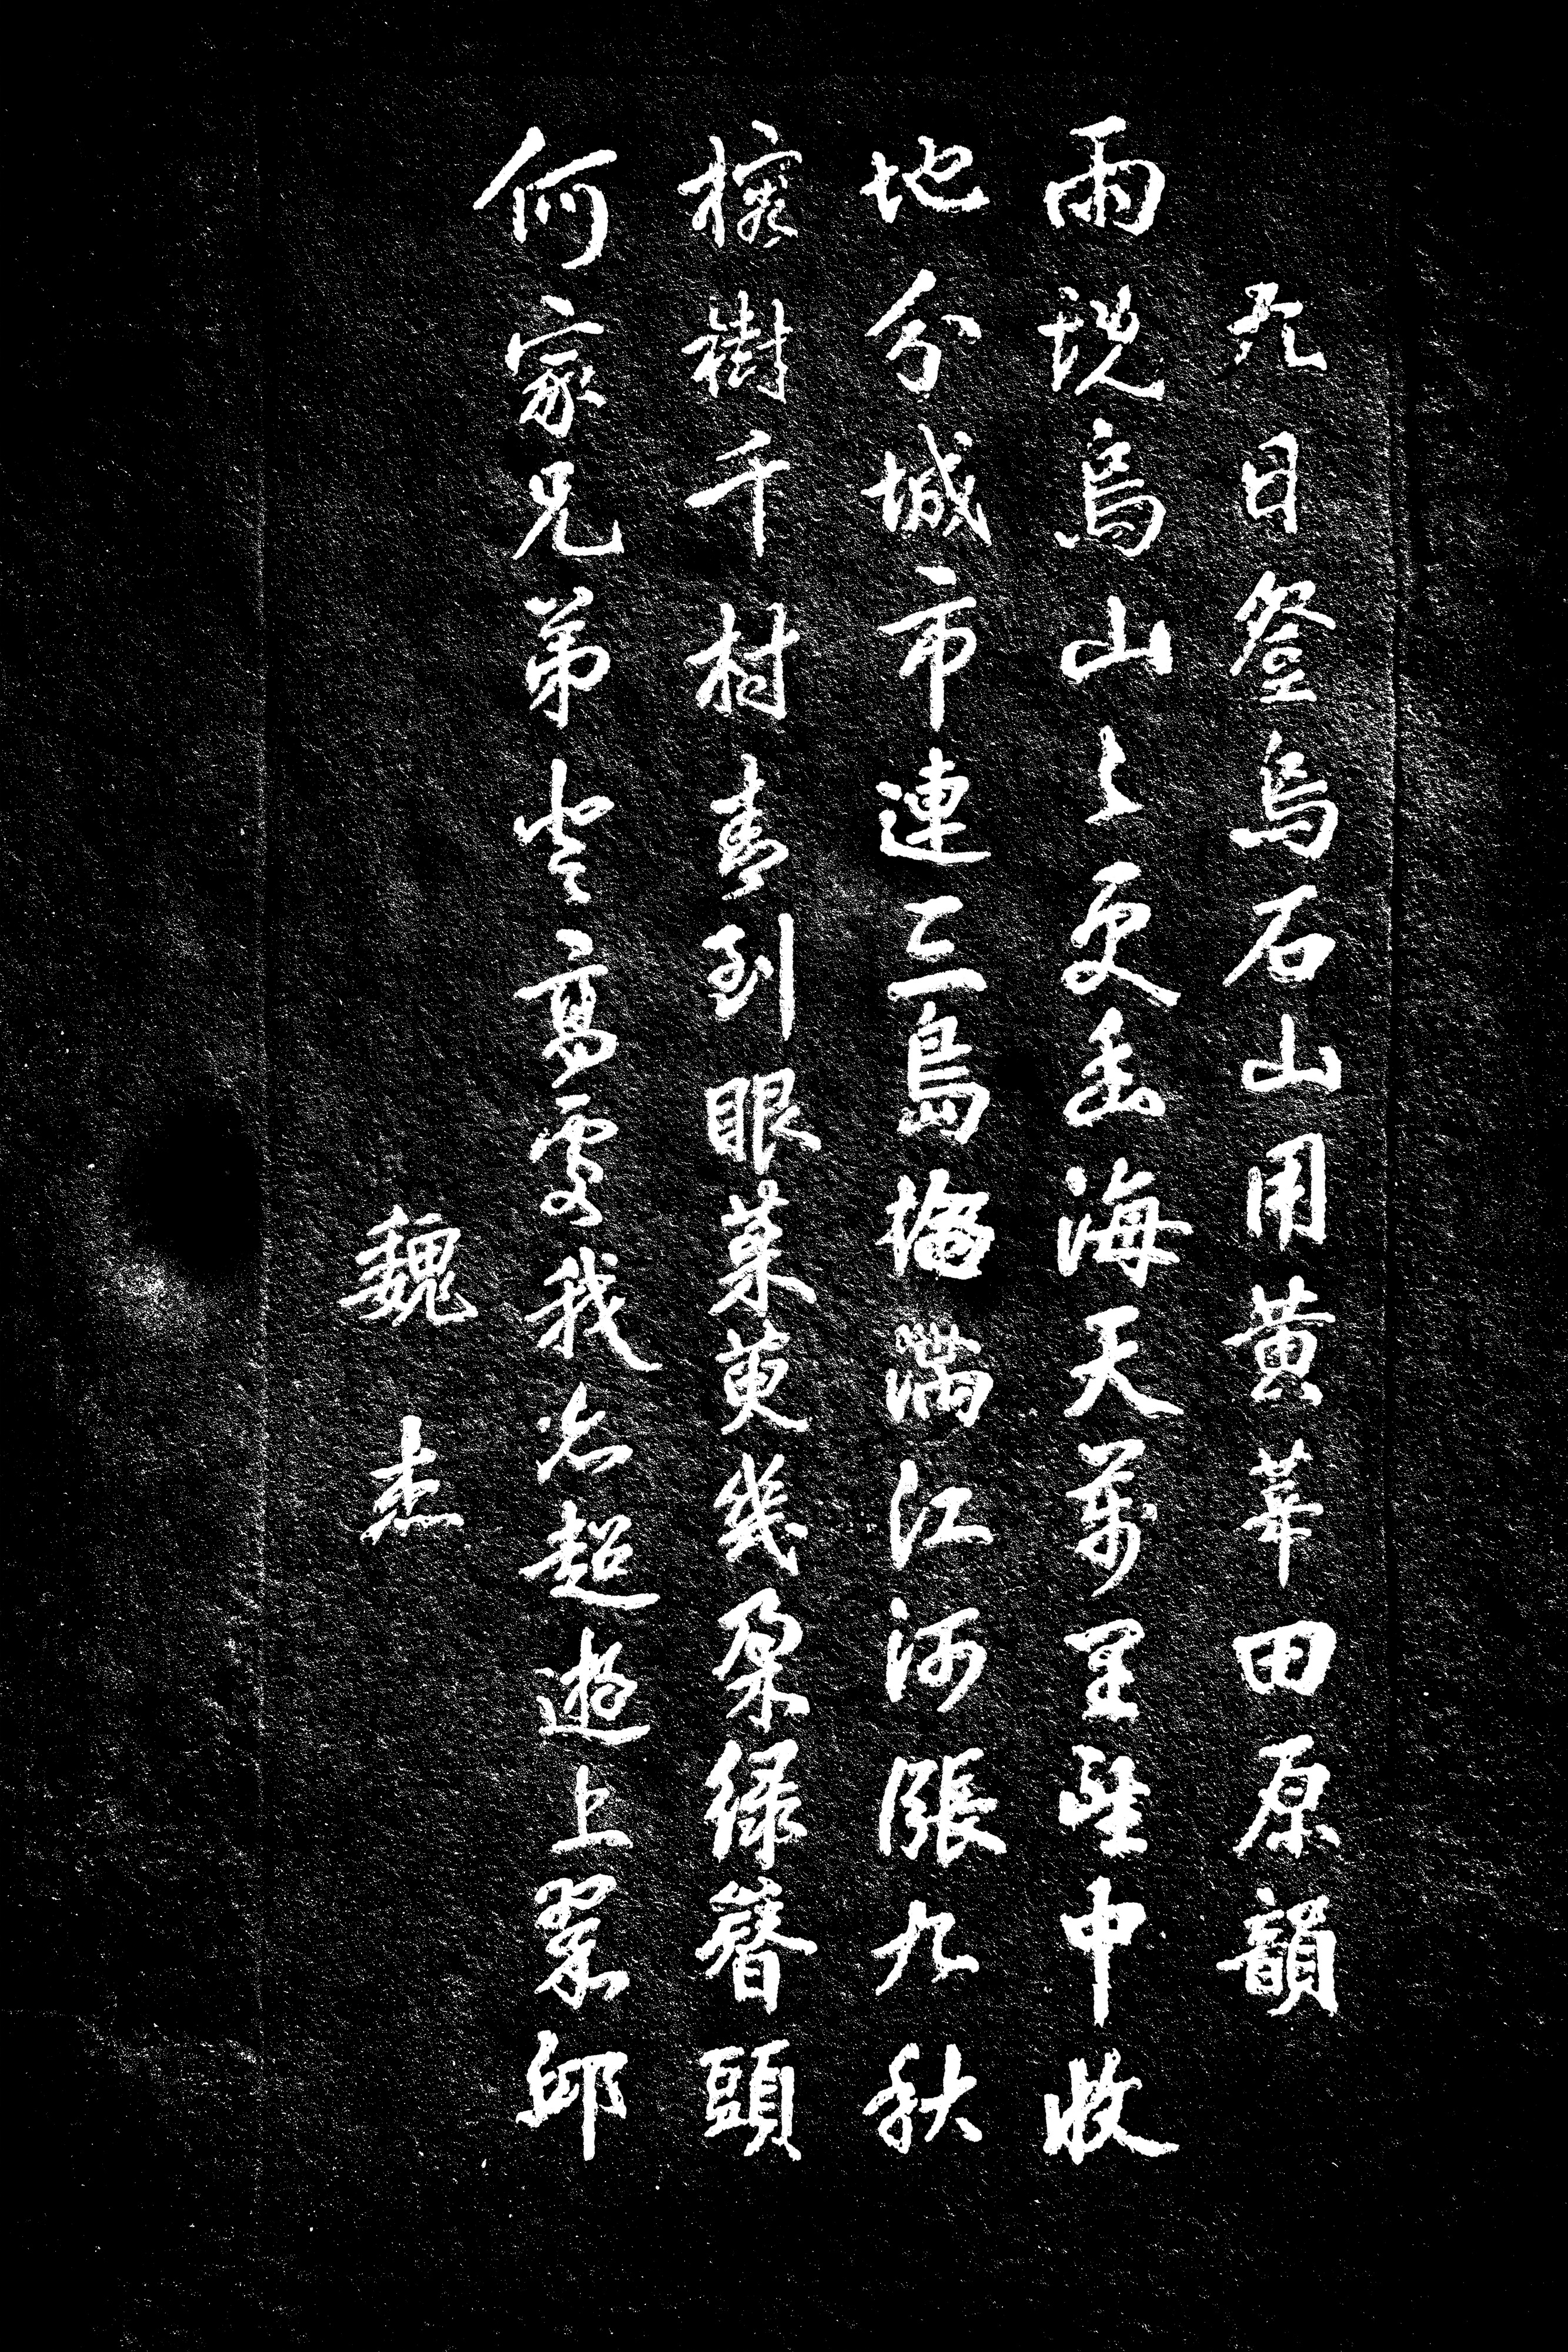 九日登烏石山用黃莘田原韻
雨烏山々更幽海天萬里望中收
地分城市連三島滿江河漲九秋
榕樹千村青到眼茱萸幾朵綠簪頭
何家兄弟登高處我超遊上翠邱
魏杰